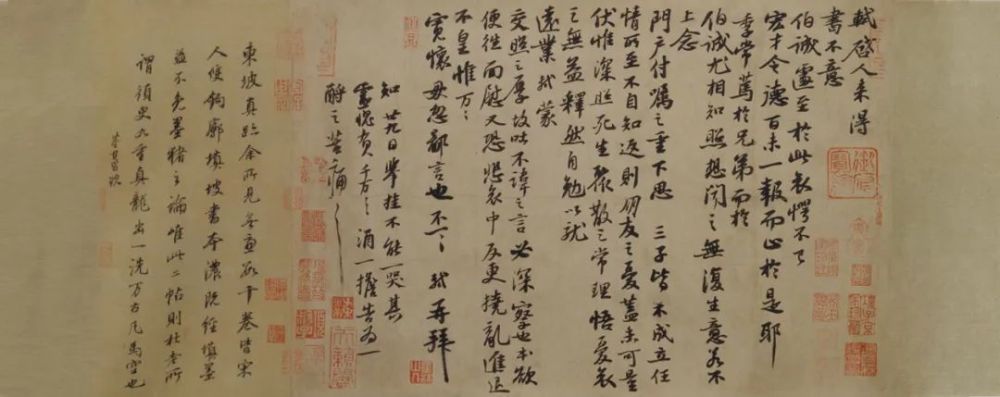 軾啓人來得
書不意
伯誠遽至於此哀愕不已
宏才令德百未一報而止於是耶
季常篤於兄弟而於
伯誠尤相知照想聞之無復生意若不
上念
門戶付囑之重下思三子皆不成立任
情所至不自知返則朋友之憂蓋未可量
伏惟深照死生聚散之常理悟憂哀
之無益釋然自勉以就
遠業軾蒙
交照之厚故吐不諱之言必深察也本欲
便往面慰又恐悲哀中反更撓亂進退
不皇惟萬〻
寬懷毋忽鄙言也不一〻軾再拜
知廿九日舉挂不能一哭其
靈愧負千万〻酒一擔告為一
酹之苦痛〻〻
東坡真跡余所見無慮數十卷皆宋
人雙鉤廓填坡書本濃既經填墨
益不免墨豬之論唯此二帖則杜老所
謂須臾九重真龍出一洗万古凡馬空也
董其昌跋